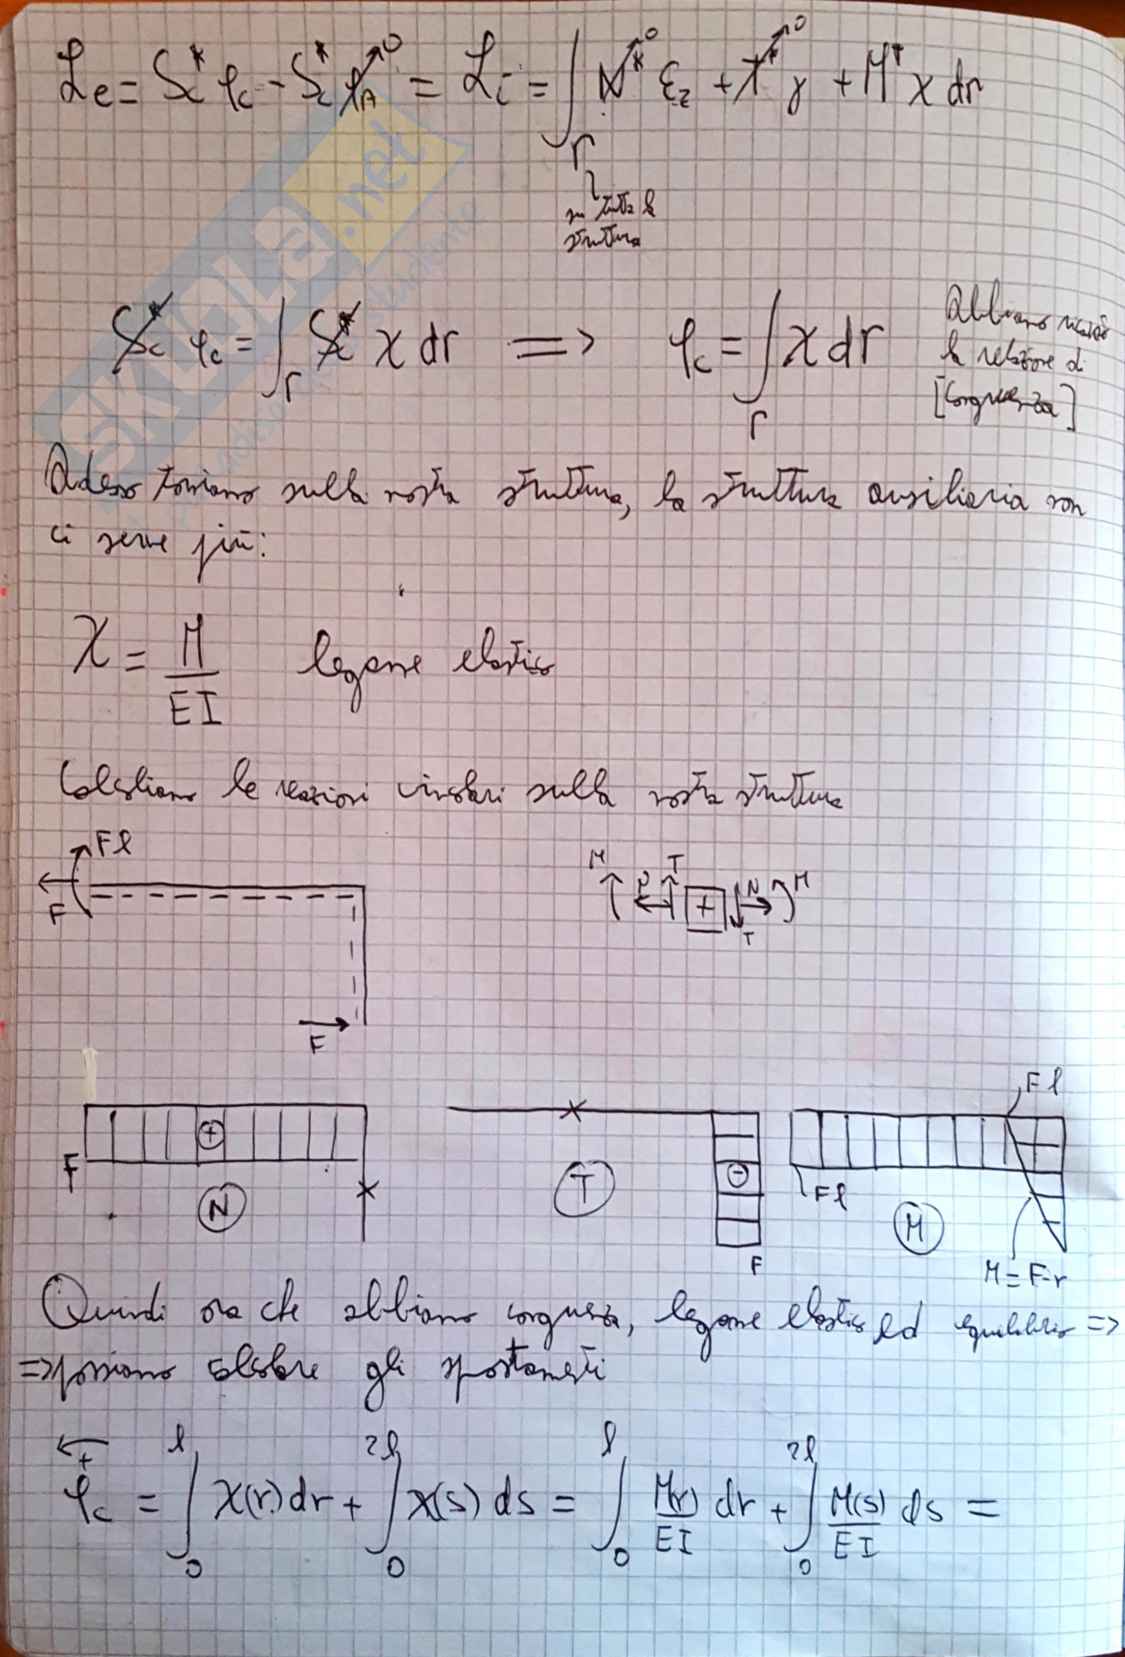 ℒe = Sc* φc - Sc* φA→0 = ℒi = ∫Γ N*→0 εz + T*→0 γ + M* χ dr
su tutta la
struttura
Sc* φc = ∫Γ Sc* χ dr => φc = ∫Γ χ dr
Abbiamo
la relazione di
[Congruenza]
Adesso torniamo sulla nostra struttura, la struttura ausiliaria non
ci serve più:
χ = M/EI legame elastico
Calcoliamo le reazioni vincolari sulla nostra struttura
Fl
F
F
M N T + N M
T
Fl
F + N
T - F
Fl M
M = F·r
Quindi ora che abbiamo congruenza, legame elastico ed equilibrio =>
=> possiamo calcolare gli spostamenti
+
φc = ∫0^l χ(r) dr + ∫0^2l χ(s) ds = ∫0^l M(r)/EI dr + ∫0^2l M(s)/EI ds =
SKUOLA.net